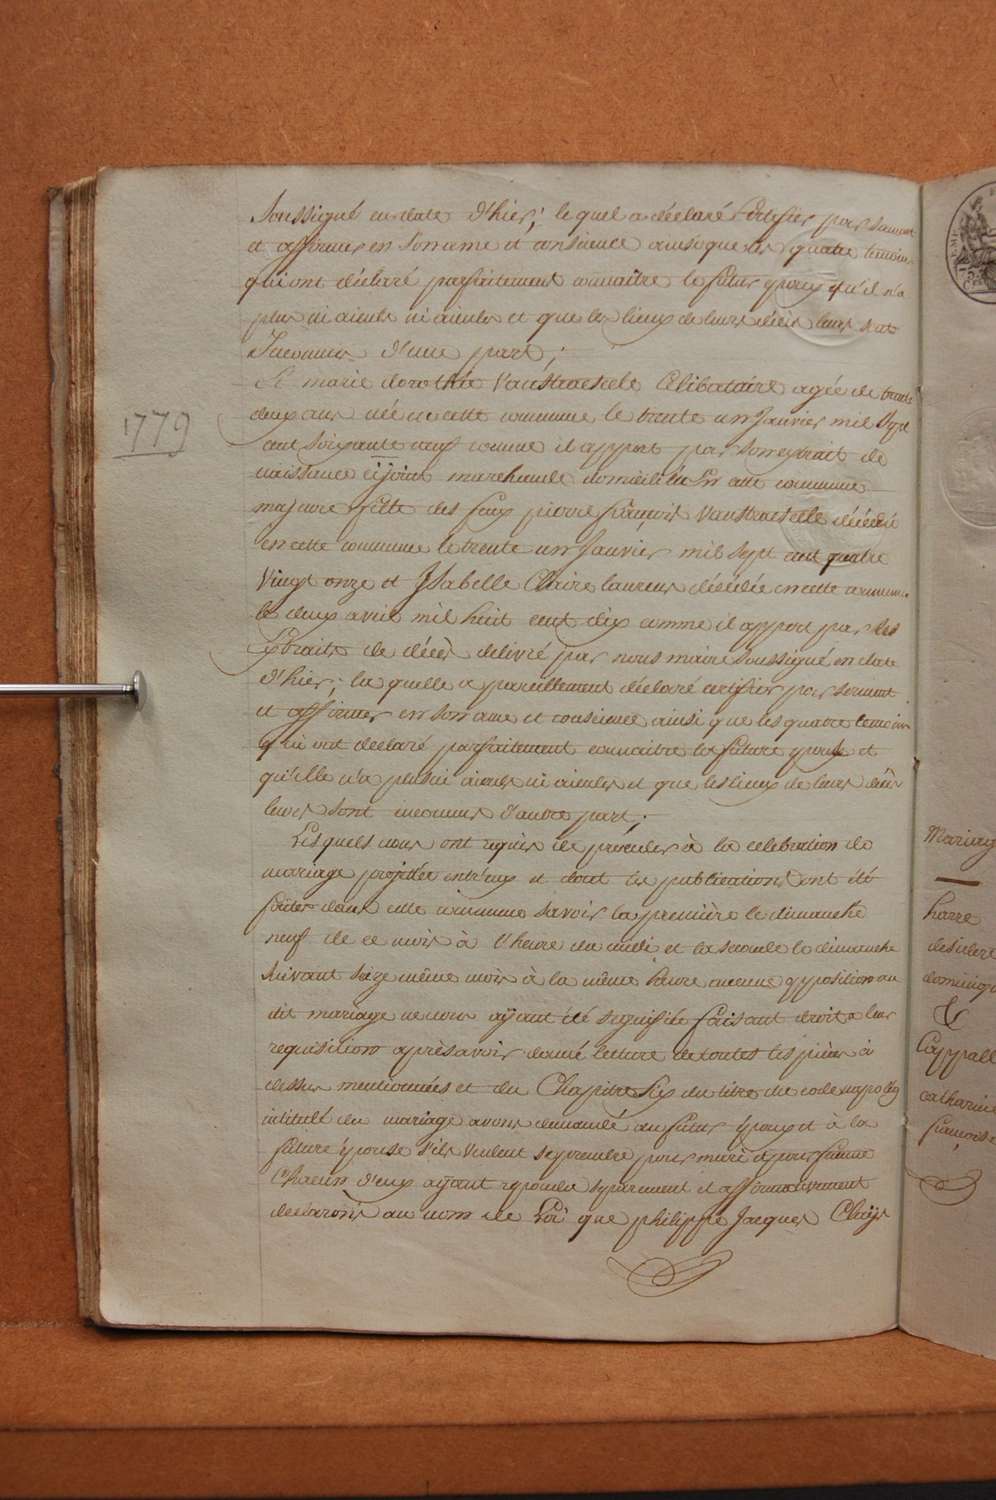 Soussigné en date d'hier; le quel a déclaré certifier par serment
et affirmer en son ame et consience ainsi que les quatre temoins
qui ont déclaré parfaitement connaitre le futur epoux qu'il n'a
plus ni aieuls ni aieules et que les lieux de leurs décès leurs sont
Inconnus d'une part;
Et marie dorothée Vanstraeseele Célibataire agée de trente
deux ans née en cette commune le trente un Janvier mil Sept
1779
cent Soixante neuf comme il appert par son extrait de
naissance cijoint marchande domiciliée En cette commune
majeure fille des feux pierre françois Vanstraeseele décédé
en cette commune le trente un Janvier mil Sept cent quatre
Vingt onze et Isabelle Claire laurens décédée en cette commune
le deux avril mil huit cent dix comme il appert par les
Extraits de décès delivré par nous maire Soussigné en date
d'hier; la quelle a pareillement déclaré certifier par serment
et affirmer en son ame et consience ainsi que les quatre temoins
qui ont declaré parfaitement connaitre la future epouse et
qu'elle n'a plus ni aieuls ni aieules et que les lieux de leurs décès
leurs sont inconnus d'autre part;
Lesquels nous ont requis de procéder à la celebration de
mariage projetté entr'eux et dont les publications ont été
faites dans cette commune savoir la première le dimanche
neuf de ce mois à l'heure du midi et la seconde le dimanche
Suivant seize même mois à la même heure aucune opposition au
dit mariage ne nous ayant été signifiée faisant droit a leur
requisition après avoir donné lecture de toutes les pièces ci
dessus mentionnées et du Chapitre Six du titre du code napoléon
intitulé du mariage avons demandé au futur époux et à la
future épouse s'ils veulent se prendre pour mari et pour femme
Chacun d'eux ayant repondu separement et affirmativement
declarons au nom de Loi que philippe Jacques Claÿs
Mariage
harre
desideré
dominique
&
Cappalle
catharine
françoise